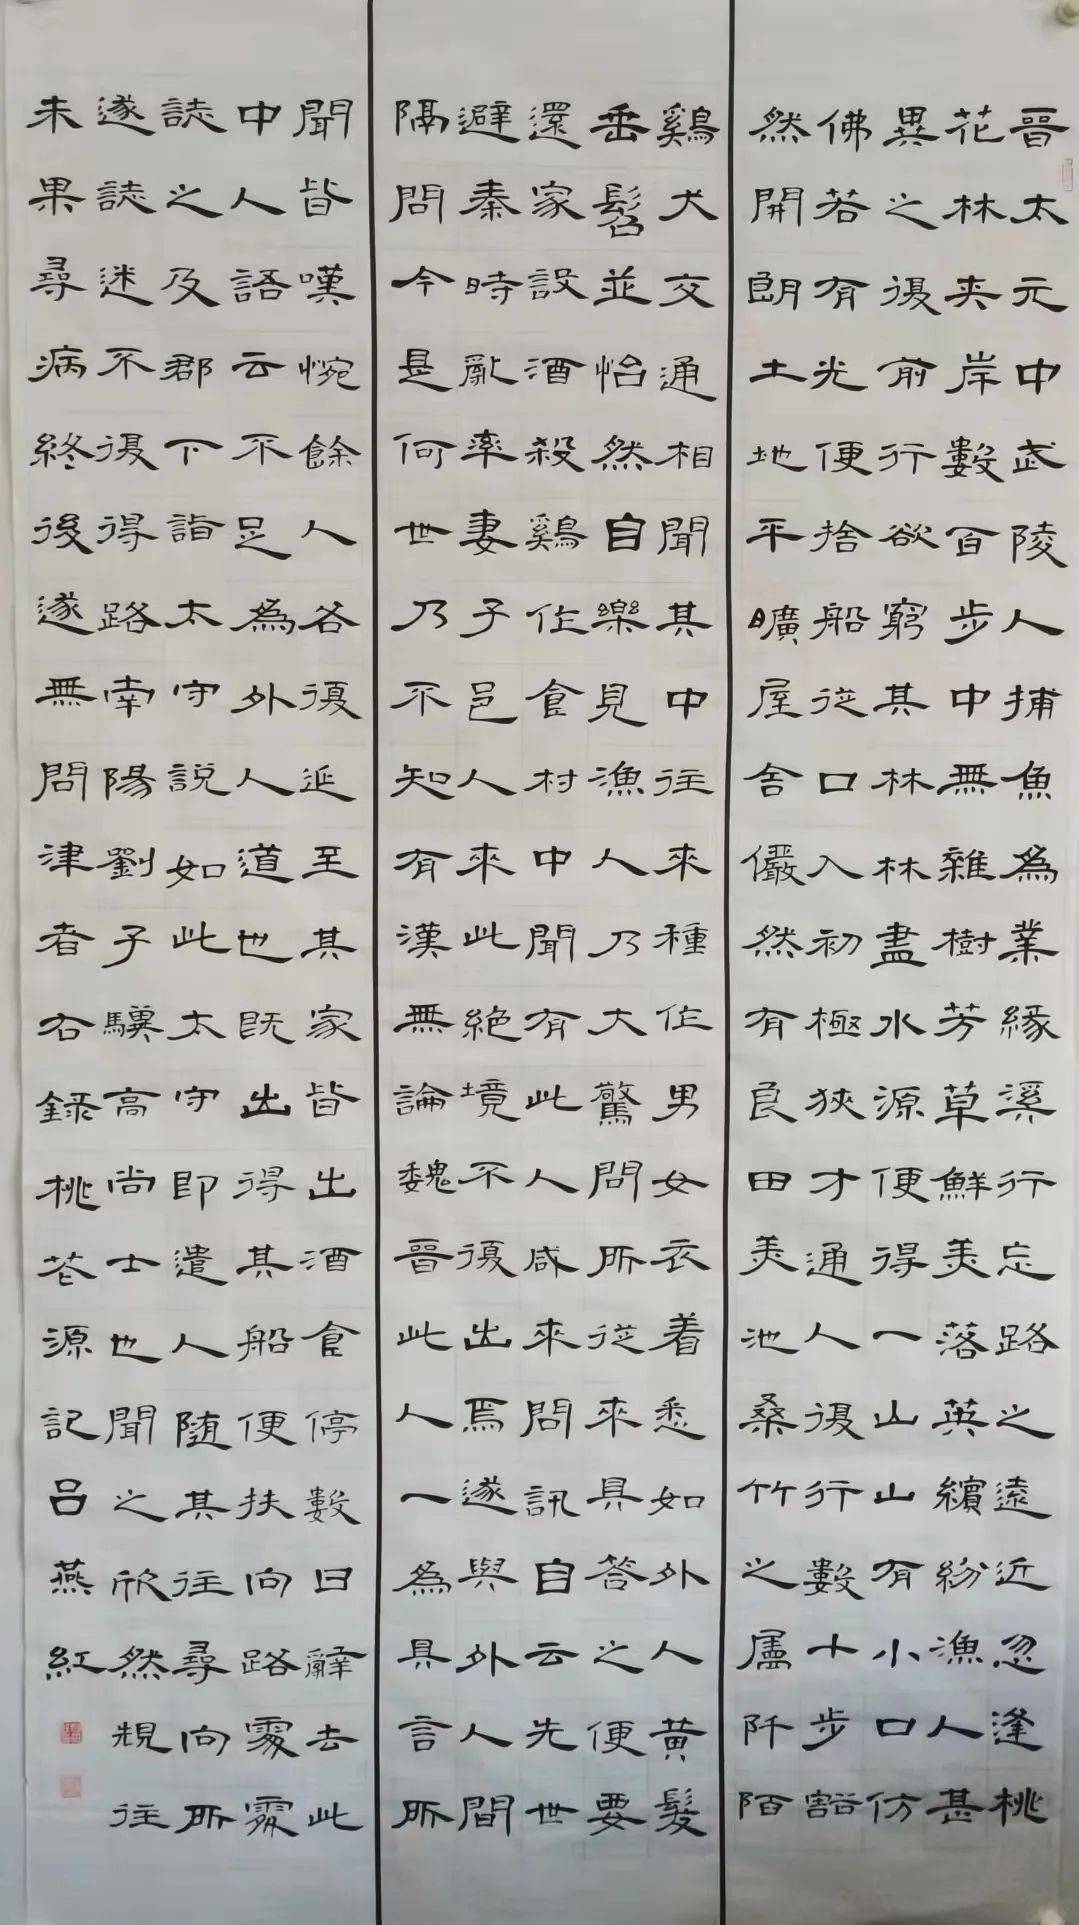 晉太元中武陵人捕魚為業緣溪行忘路之遠近忽逢桃
花林夾岸數百步中無雜樹芳草鮮美落英繽紛漁人甚
異之復前行欲窮其林林盡水源便得一山山有小口仿
佛若有光便捨船從口入初極狹才通人復行數十步豁
然開朗土地平曠屋舍儼然有良田美池桑竹之屬阡陌
鷄犬交通相聞其中往來種作男女衣着悉如外人黃髮
垂髫並怡然自樂見漁人乃大驚問所從來具答之便要
還家設酒殺鷄作食村中聞有此人咸來問訊自云先世
避秦時亂率妻子邑人來此絕境不復出焉遂與外人間
隔問今是何世乃不知有漢無論魏晉此人一為具言所
聞皆嘆惋餘人各復延至其家皆出酒食停數日辭去此
中人語云不足為外人道也既出得其船便扶向路處處
誌之及郡下詣太守說如此太守即遣人隨其往尋向所
遂誌迷不復得路南陽劉子驥高尚士也聞之欣然規往
未果尋病終後遂無問津者右錄桃花源記呂燕紅